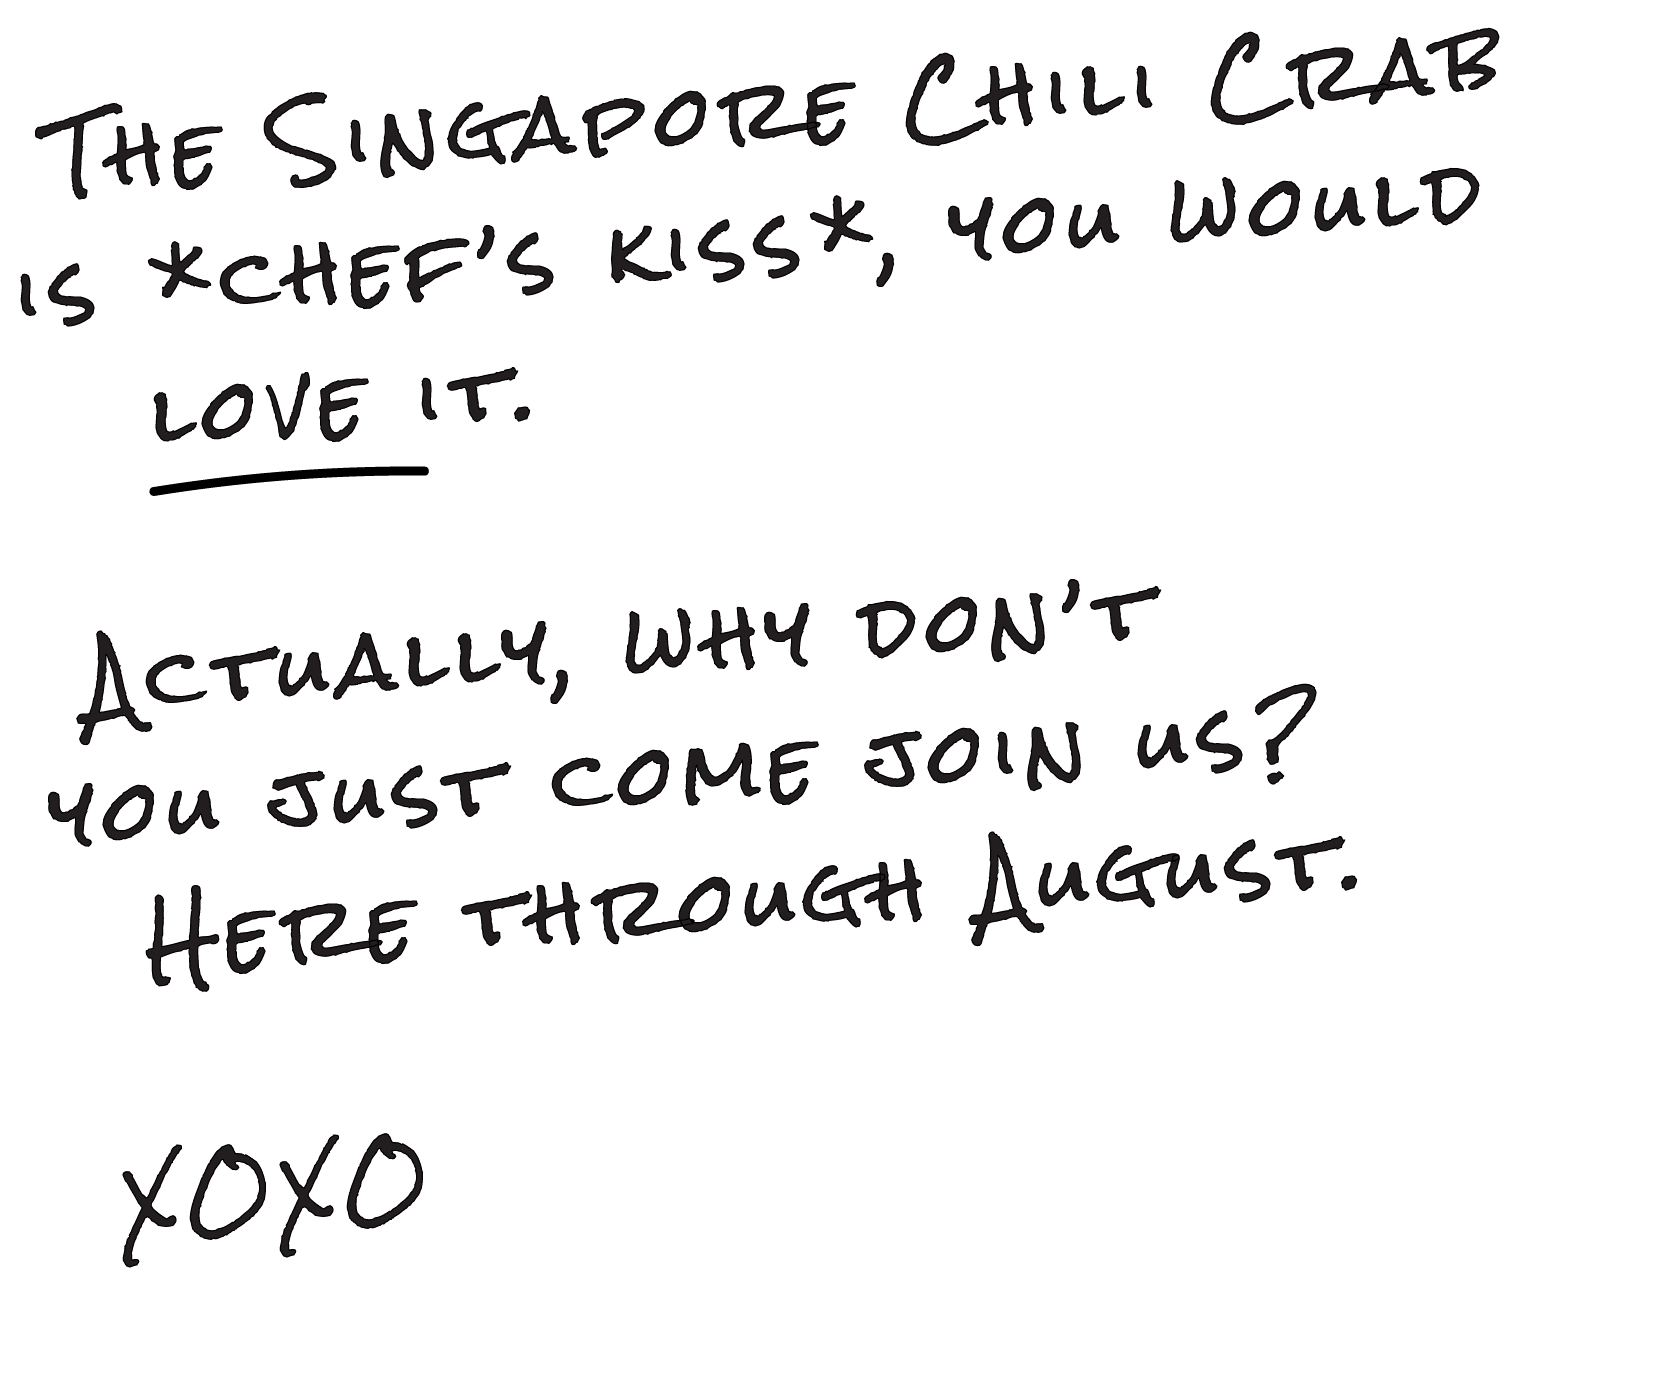 The Singapore Chili Crab
is *chef's kiss*, you would
love it.
Actually, why don't
you just come join us?
Here through August.
xoxo